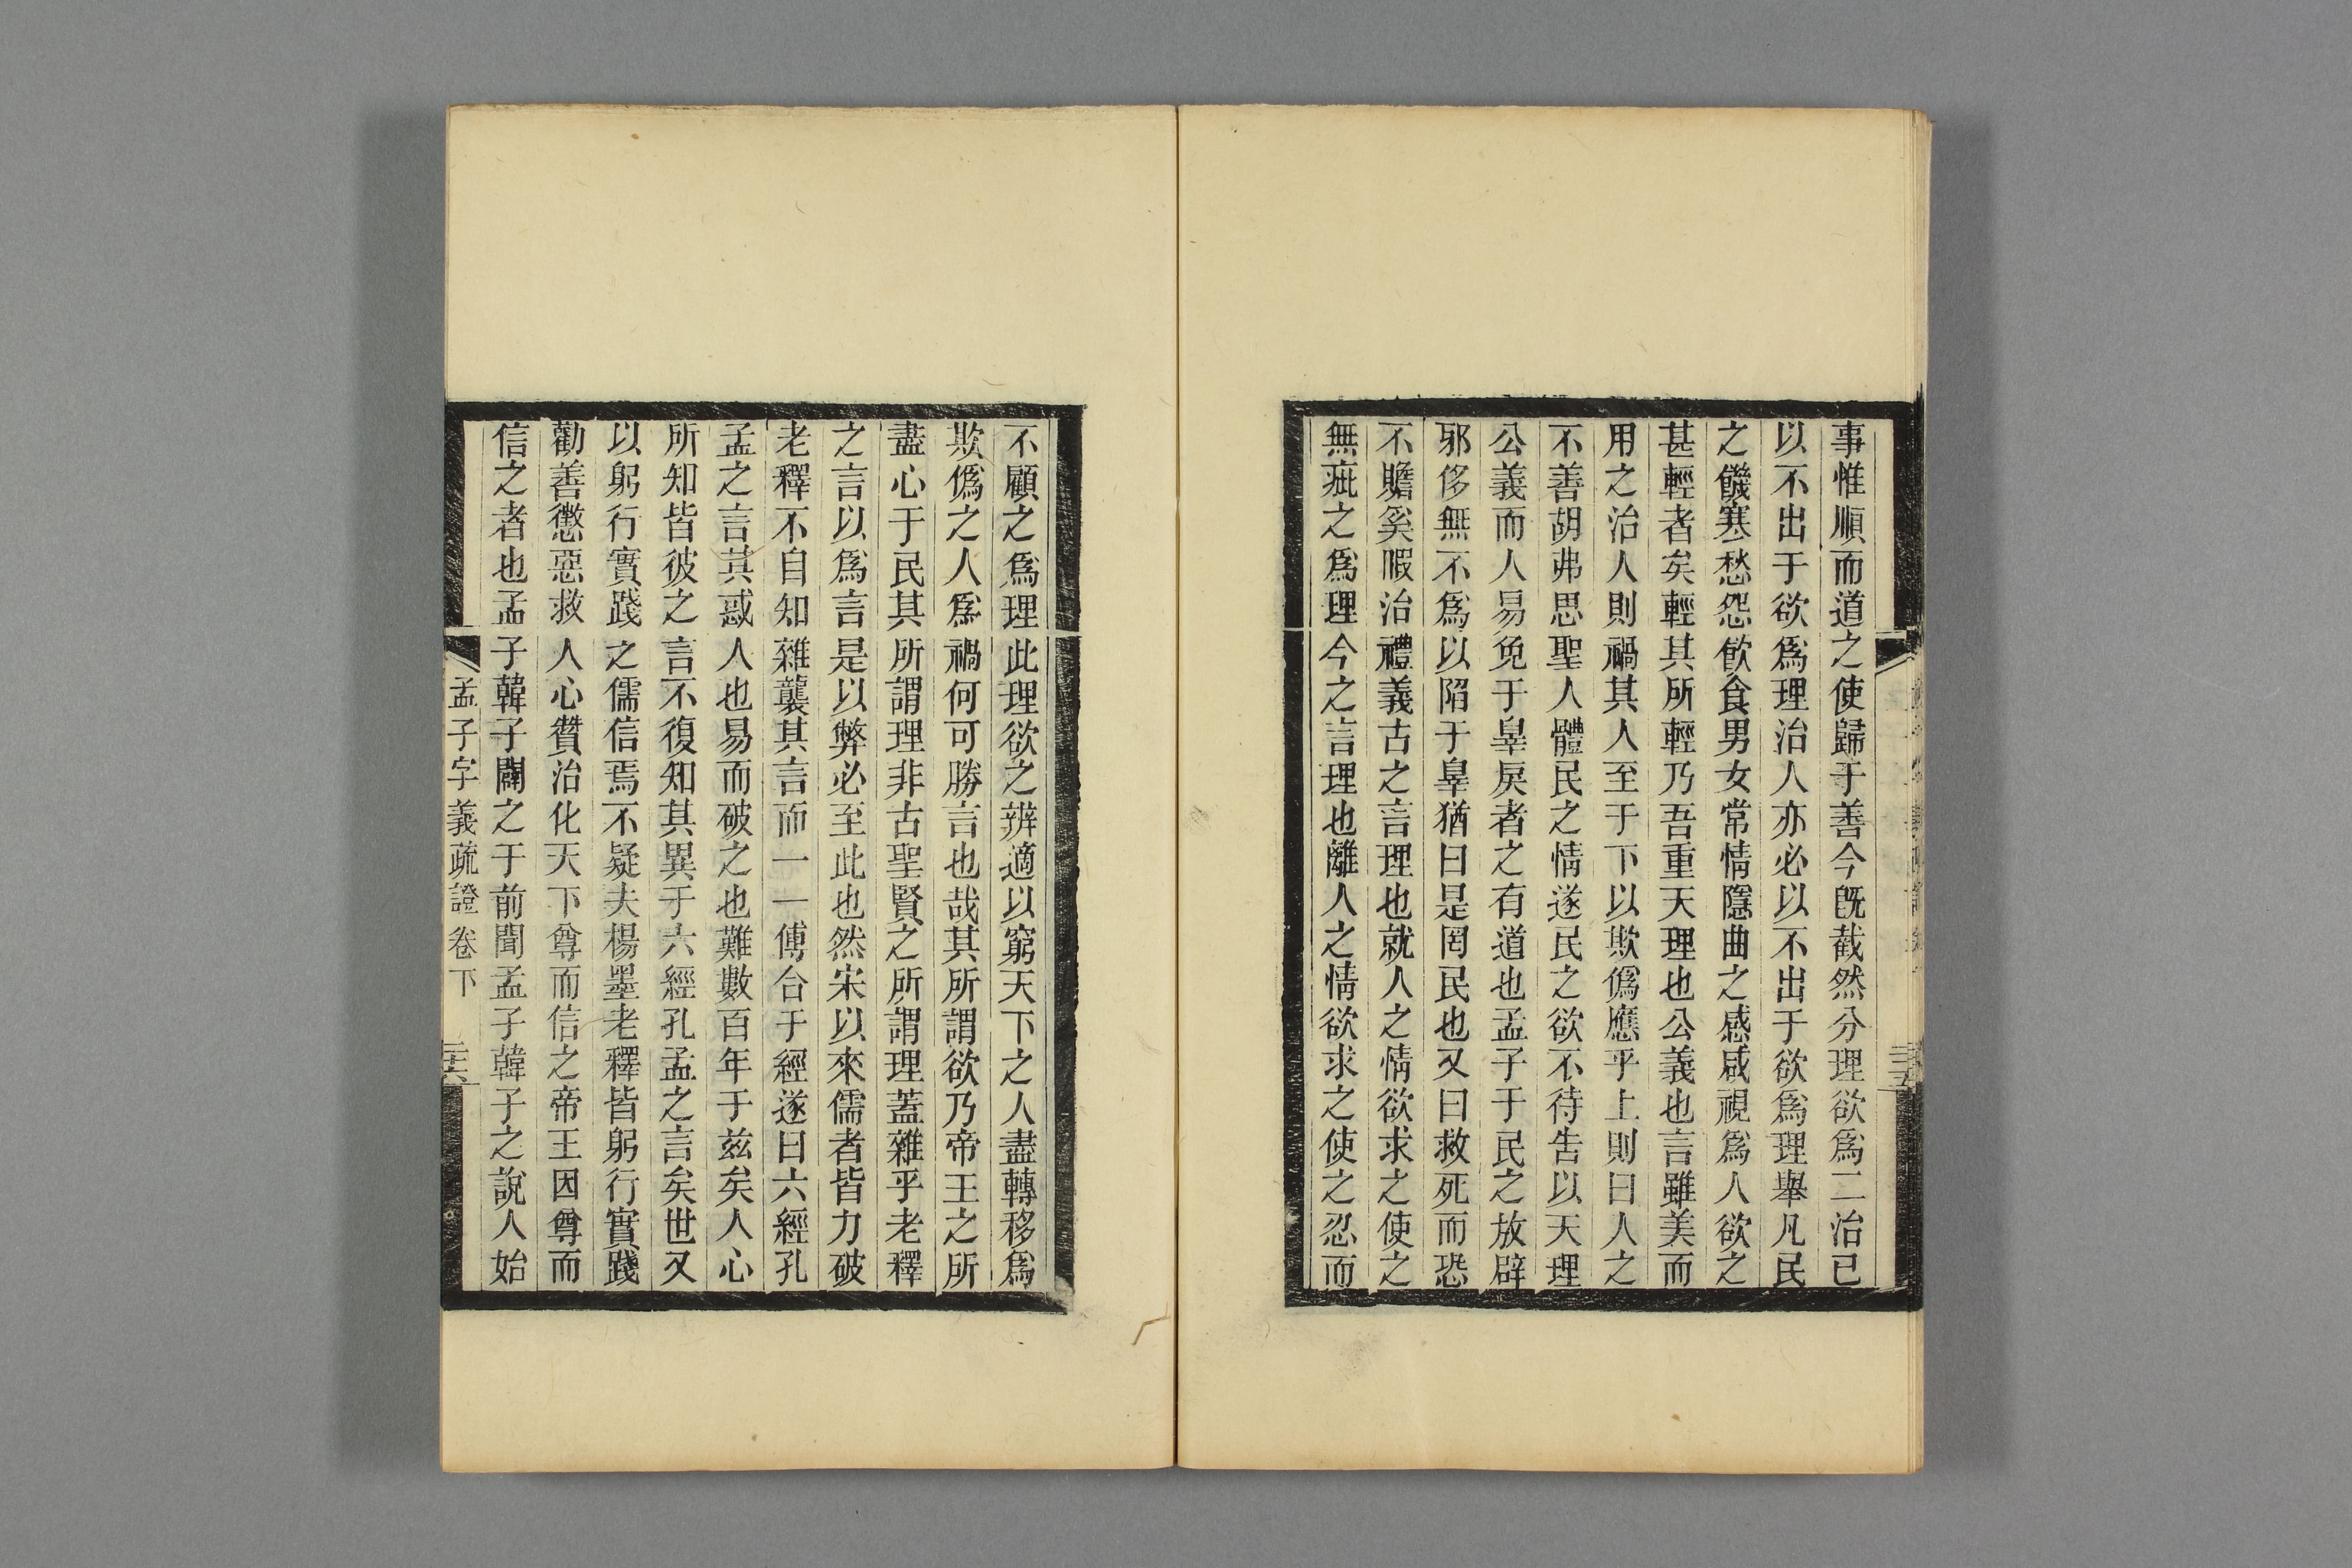 事惟順而道之使歸于善今旣截然分理欲爲二治己
以不出于欲爲理治人亦必以不出于欲爲理舉凡民
之饑寒愁怨飮食男女常情隱曲之感咸視爲人欲之
甚輕者矣輕其所輕乃吾重天理也公義也言雖美而
用之治人則禍其人至于下以欺僞應乎上則曰人之
不善胡弗思聖人體民之情遂民之欲不待告以天理
公義而人易免于辠戾者之有道也孟子于民之放辟
邪侈無不爲以陷于辠猶曰是罔民也又曰救死而恐
不贍奚暇治禮義古之言理也就人之情欲求之使之
無疵之爲理今之言理也離人之情欲求之使之忍而
三五
不顧之爲理此理欲之辨適以窮天下之人盡轉移爲
欺僞之人爲禍何可勝言也哉其所謂欲乃帝王之所
盡心于民其所謂理非古聖賢之所謂理蓋雜乎老釋
之言以爲言是以弊必至此也然宋以來儒者皆力破
老釋不自知雜襲其言而一一傅合于經遂曰六經孔
孟之言其惑人也易而破之也難數百年于茲矣人心
所知皆彼之言不復知其異于六經孔孟之言矣世又
以躬行實踐之儒信焉不疑夫楊墨老釋皆躬行實踐
勸善懲惡救人心贊治化天下尊而信之帝王因尊而
信之者也孟子韓子闢之于前聞孟子韓子之說人始
孟子字義疏證卷下
三六